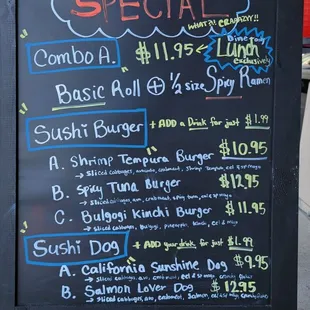 SPECIAL
WHAT?! CRAAAZY!!
Combo A. $11.95
Dine in only
Lunch
exclusively
Basic Roll + 1/2 size Spicy Ramen
Sushi Burger + ADD a Drink for just $1.99
A. Shrimp Tempura Burger $10.95
→ sliced cabbages, avocado, crabmeat, shrimp tempura, eel sp mayo
B. Spicy Tuna Burger $12.95
→ sliced cabbages, avo, crabmeat, spicy tuna, eel sp mayo
C. Bulgogi Kimchi Burger $11.95
→ sliced cabbages, Bulgogi, kimchi, eel mayo
Sushi Dog + ADD your drink for just $1.99
A. California Sunshine Dog $9.95
→ sliced cabbages, avo, crab meat, eel sp mayo
B. Salmon Lover Dog $12.95
→ sliced cabbages, avo, Salmon, eel